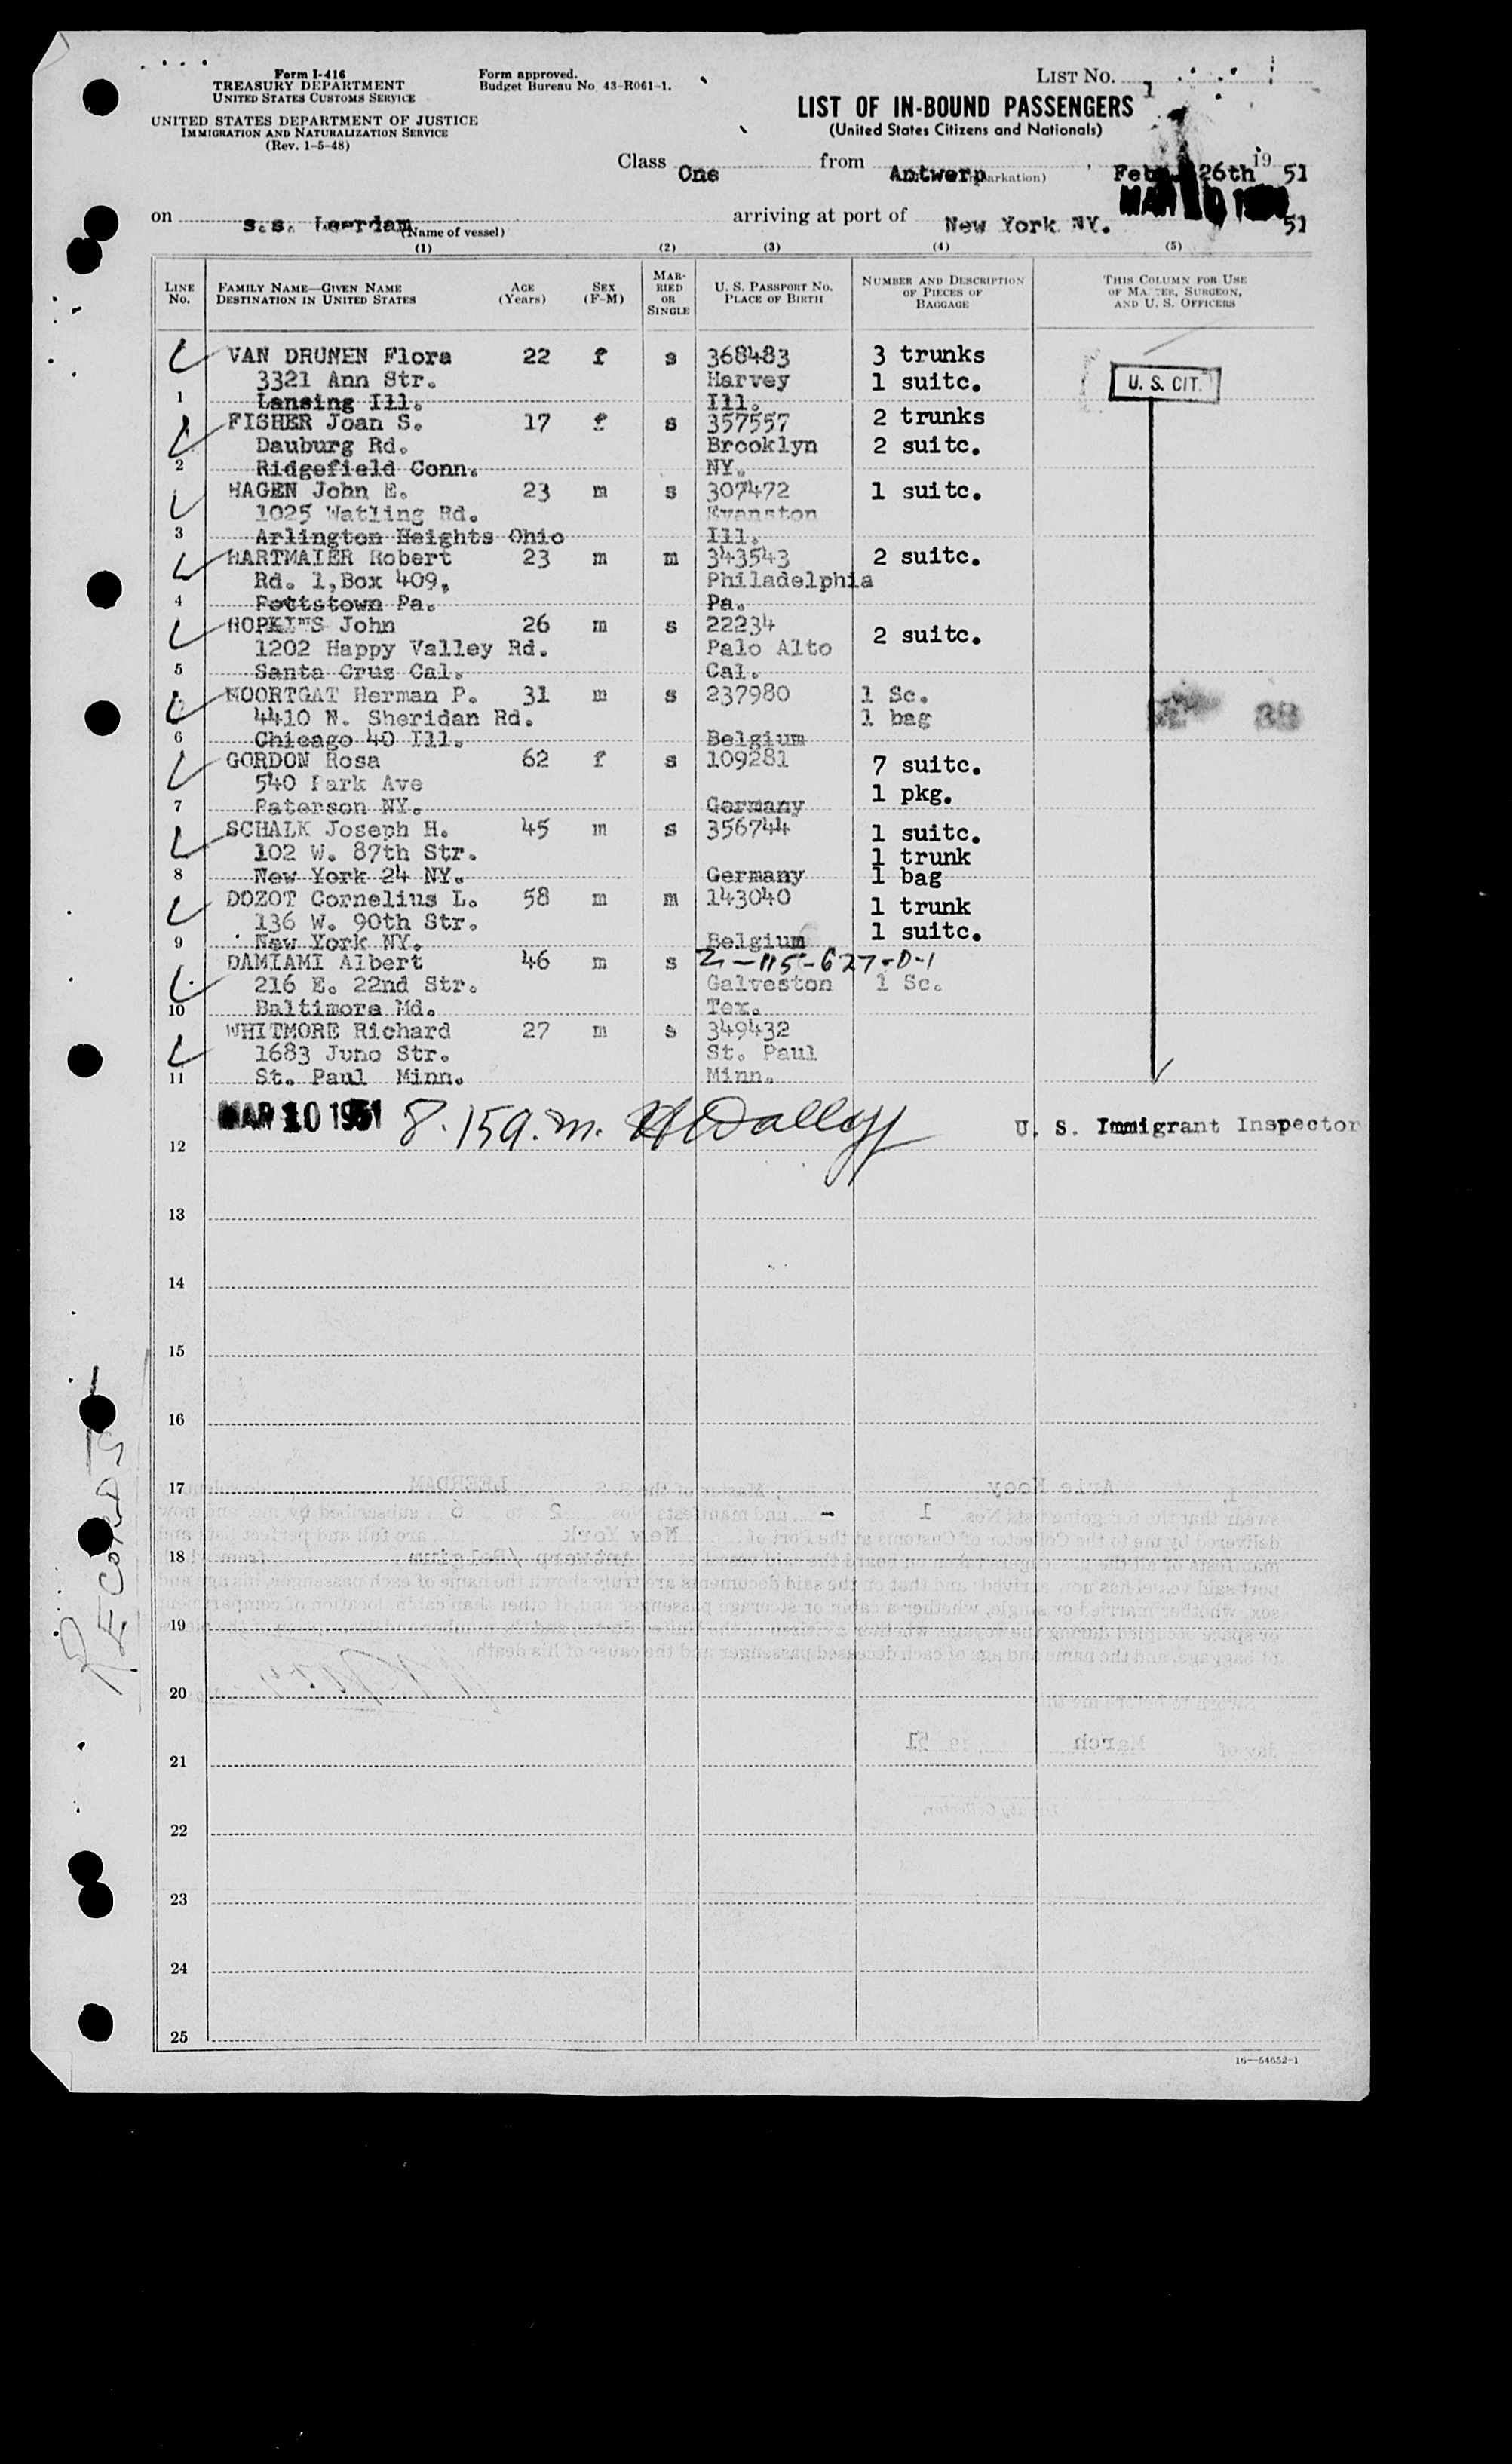 Form I-416
TREASURY DEPARTMENT
UNITED STATES CUSTOMS SERVICE
UNITED STATES DEPARTMENT OF JUSTICE
IMMIGRATION AND NATURALIZATION SERVICE
(Rev. 1-5-48)
Form approved.
Budget Bureau No. 43-R061-1.
LIST NO. 1
LIST OF IN-BOUND PASSENGERS
(United States Citizens and Nationals)
Class One from Antwerp, 26th 1951
on s.s. Leerdam arriving at port of New York NY. 51
(Name of vessel)
(1) (2) (3) (4) (5)
LINE No. FAMILY NAME—GIVEN NAME DESTINATION IN UNITED STATES AGE (Years) SEX (F-M) MARRIED OR SINGLE U. S. PASSPORT NO. PLACE OF BIRTH NUMBER AND DESCRIPTION OF PIECES OF BAGGAGE THIS COLUMN FOR USE OF MASTER, SURGEON, AND U. S. OFFICERS
VAN DRUNEN Flora 22 f s 368483 3 trunks
3321 Ann Str. Harvey 1 suitc. U. S. CIT.
1 Lansing Ill. Ill.
FISHER Joan S. 17 f s 357557 2 trunks
Dauburg Rd. Brooklyn 2 suitc.
2 Ridgefield Conn. NY.
HAGEN John E. 23 m s 307472 1 suitc.
1025 Watling Rd. Evanston
3 Arlington Heights Ohio Ill.
HARTMAIER Robert 23 m m 343543 2 suitc.
Rd. 1, Box 409, Philadelphia
4 Pottstown Pa. Pa.
HOPKINS John 26 m s 22234 2 suitc.
1202 Happy Valley Rd. Palo Alto
5 Santa Cruz Cal. Cal.
MOORTGAT Herman P. 31 m s 237980 1 Sc.
4410 N. Sheridan Rd. 1 bag
6 Chicago 40 Ill. Belgium
GORDON Rosa 62 f s 109281 7 suitc.
540 Park Ave 1 pkg.
7 Paterson NY. Germany
SCHALK Joseph H. 45 m s 356744 1 suitc.
102 W. 87th Str. 1 trunk
8 New York 24 NY. Germany 1 bag
DOZOT Cornelius L. 58 m m 143040 1 trunk
136 W. 90th Str. 1 suitc.
9 New York NY. Belgium
DAMIAMI Albert 46 m s 2-115-627-D-1
216 E. 22nd Str. Galveston 1 Sc.
10 Baltimore Md. Tex.
WHITMORE Richard 27 m s 349432
1683 Juno Str. St. Paul
11 St. Paul Minn. Minn.
MAR 10 1951 8.15 a.m. U. S. Immigrant Inspector
12
13
14
15
16
17
18
19
20
21
22
23
24
25
RECORDS
16—54652-1